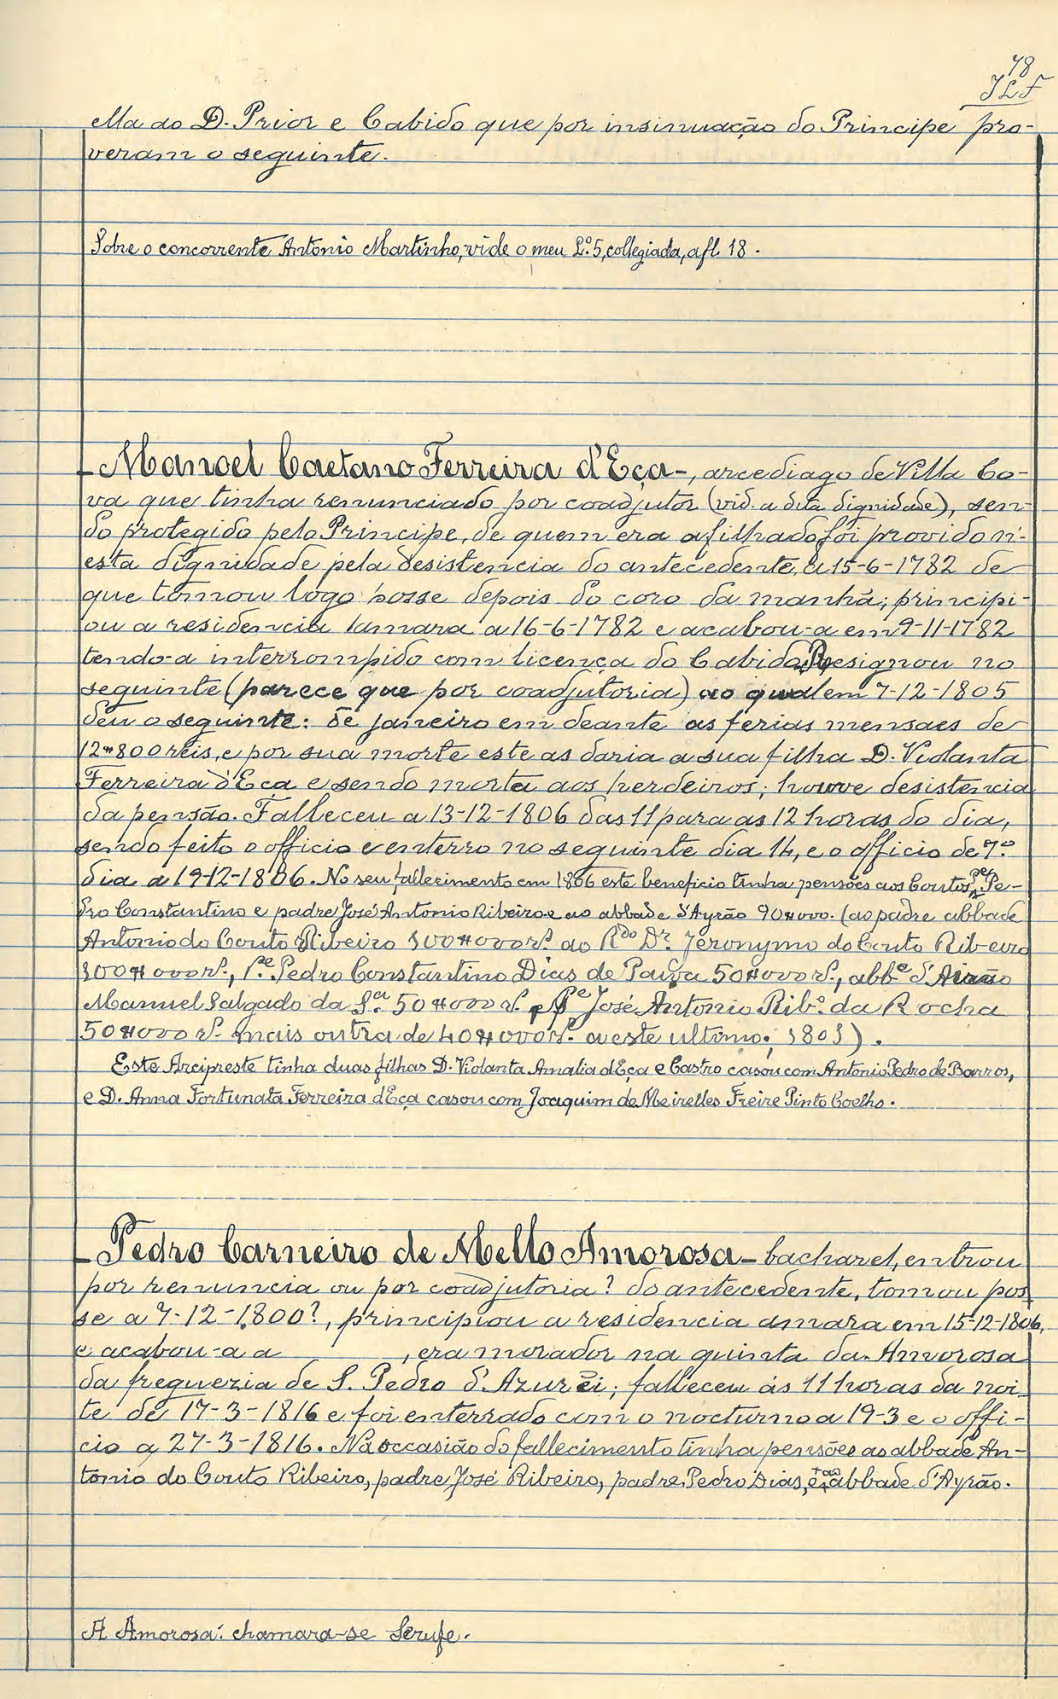 78
JLF
ella ao D. Prior e Cabido que por insinuação do Principe pro-
veram o seguinte.
Sobre o concorrente Antonio Martinho, vide o meu L.º 5, collegiada, a fl. 18.
Manoel Caetano Ferreira d'Eça-, arcediago de Villa Co-
va que tinha renunciado por coadjutor (vid. a dita dignidade), sen-
do protegido pelo Principe, de quem era afilhado foi provido n'-
esta dignidade pela desistencia do antecedente, a 15-6-1782 de
que tomou logo posse depois do coro da manhã; principi-
ou a residencia amara a 16-6-1782 e acabou-a em 9-11-1782
tendo-a interrompido com licença do Cabido. Resignou no
seguinte (parece que por coadjutoria) ao qual em 7-12-1805
deu o seguinte: de janeiro em deante as ferias mensaes de
12#800 reis, e por sua morte este as daria a sua filha D. Violanta
Ferreira d'Eça e sendo morta aos herdeiros; houve desistencia
da pensão. Falleceu a 13-12-1806 das 11 para as 12 horas do dia,
sendo feito o officio e enterro no seguinte dia 14, e o officio de 7.º
dia a 19-12-1806. No seu fallecimento em 1806 este beneficio tinha pensões aos Coutos, P.e Pe-
dro Constantino e padre José Antonio Ribeiro e ao abbade d'Ayrão 90#000. (ao padre abbade
Antonio do Couto Ribeiro 100#000 rs. ao R.do Dr. Jeronymo do Couto Ribeiro
100#000 rs., P.e Pedro Constantino Dias de Paiva 50#000 rs., abb.e d'Airão
Manuel Salgado da S.a 50#000 rs. e P.e José Antonio Rib.º da Rocha
50#000 rs. mais outra de 40#000 rs. a este ultimo; 1801).
Este Arcipreste tinha duas filhas D. Violanta Amalia d'Eça e Castro casou com Antonio Pedro de Barros,
e D. Anna Fortunata Ferreira d'Eça casou com Joaquim de Meirelles Freire Pinto Coelho.
Pedro Carneiro de Mello Amorosa- bacharel, entrou
por renuncia ou por coadjutoria? do antecedente, tomou pos-
se a 7-12-1800?, principiou a residencia amara em 15-12-1806,
e acabou-a a , era morador na quinta da Amorosa
da freguezia de S. Pedro d'Azurei; falleceu ás 11 horas da noi-
te de 17-3-1816 e foi enterrado com o nocturno a 19-3 e o offi-
cio a 27-3-1816. Na occasião do fallecimento tinha pensões ao abbade An-
tonio do Couto Ribeiro, padre José Ribeiro, padre Pedro Dias, e ao abbade d'Ayrão.
A Amorosa: chamara-se Serufe.